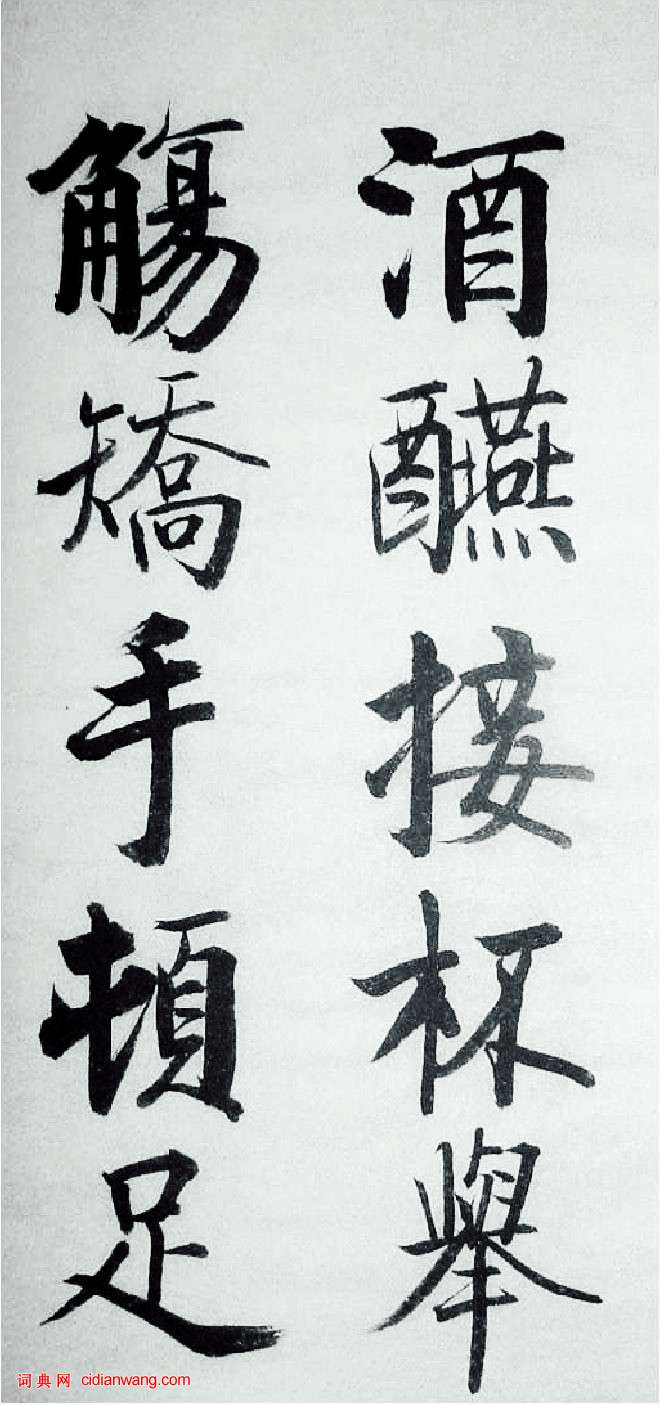 酒醼接杯舉
觴矯手頓足
词典网 cidianwang.com